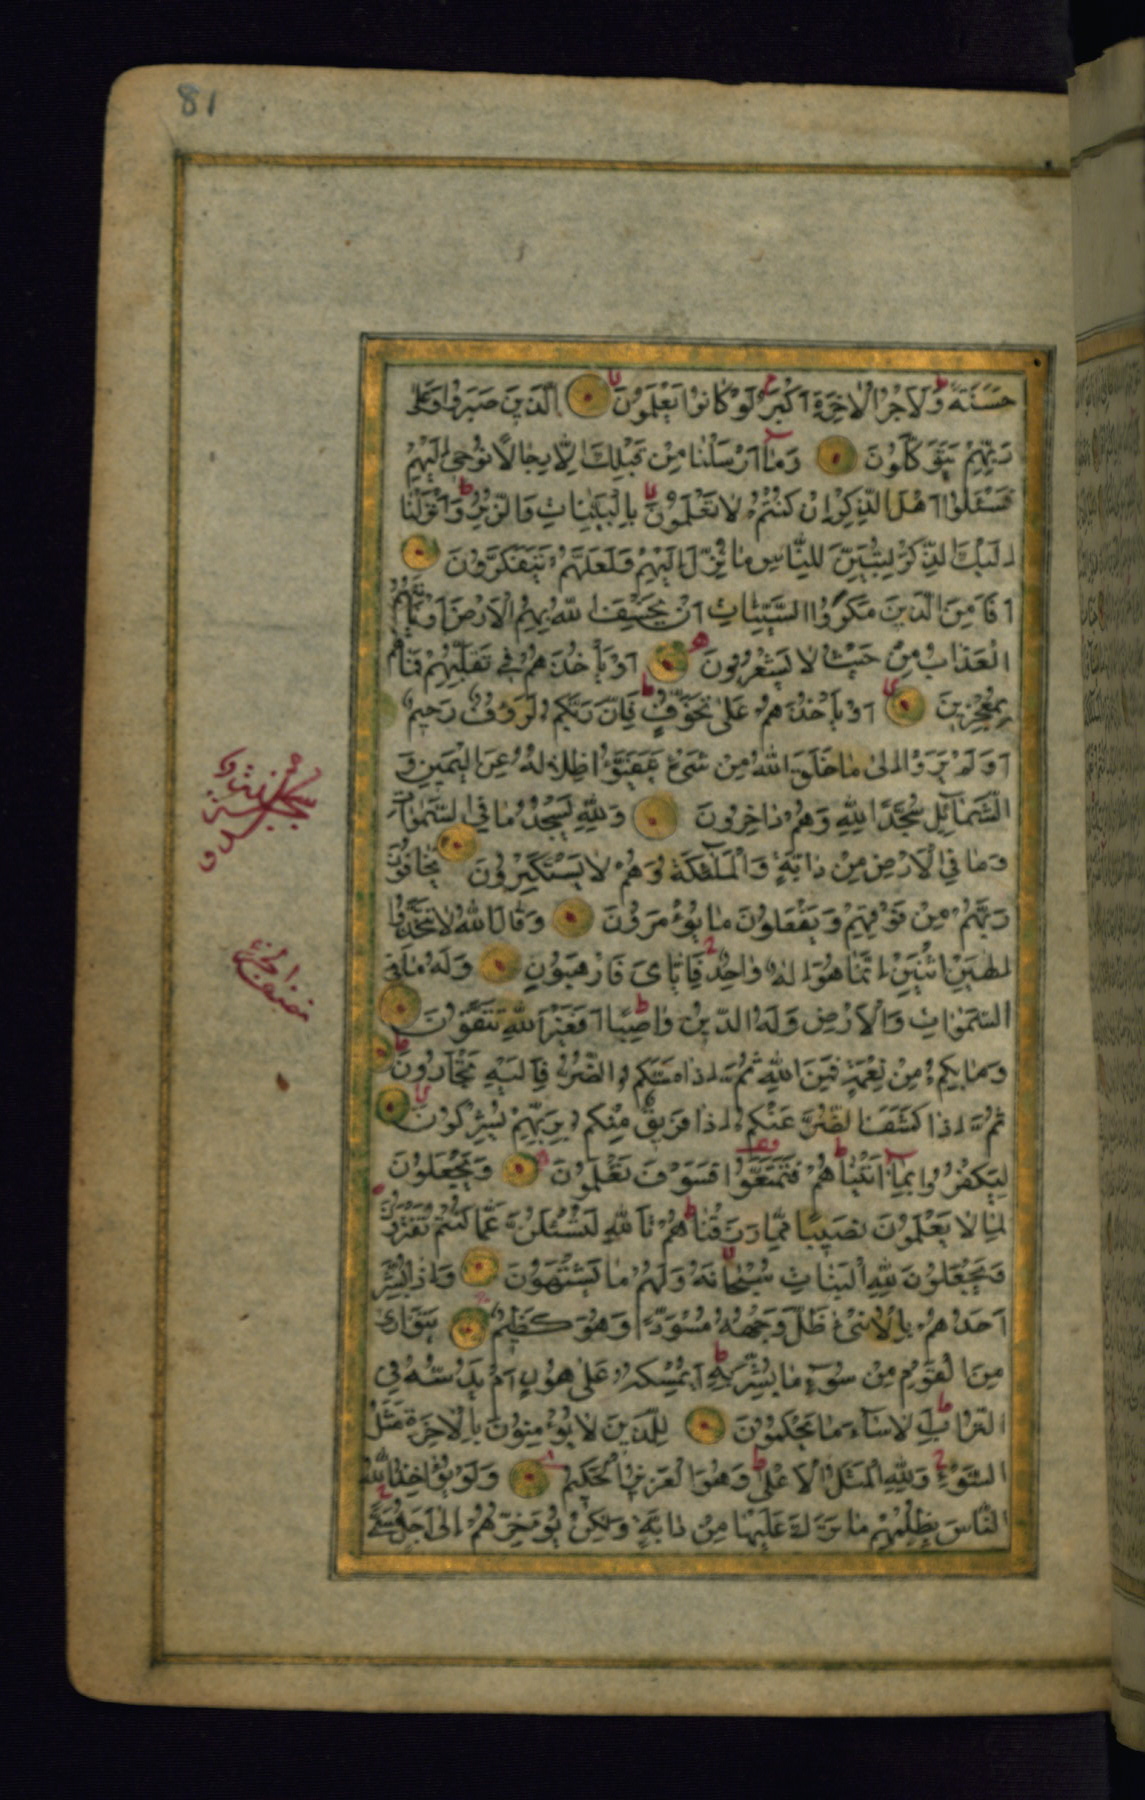 81
حَسَنَةً وَلَاَجْرُ الْاٰخِرَةِ اَكْبَرُ لَوْ كَانُوا يَعْلَمُونَ اَلَّذِينَ صَبَرُوا وَعَلٰى
رَبِّهِمْ يَتَوَكَّلُونَ وَمَا اَرْسَلْنَا مِنْ قَبْلِكَ اِلَّا رِجَالًا نُوحِى اِلَيْهِمْ
فَسْـَٔلُوا اَهْلَ الذِّكْرِ اِنْ كُنْتُمْ لَا تَعْلَمُونَ بِالْبَيِّنَاتِ وَالزُّبُرِ وَاَنْزَلْنَا
اِلَيْكَ الذِّكْرَ لِتُبَيِّنَ لِلنَّاسِ مَا نُزِّلَ اِلَيْهِمْ وَلَعَلَّهُمْ يَتَفَكَّرُونَ
اَفَاَمِنَ الَّذِينَ مَكَرُوا السَّيِّئَاتِ اَنْ يَخْسِفَ اللّٰهُ بِهِمُ الْاَرْضَ اَوْ يَأْتِيَهُمُ
الْعَذَابُ مِنْ حَيْثُ لَا يَشْعُرُونَ اَوْ يَأْخُذَهُمْ فِى تَقَلُّبِهِمْ فَمَا هُمْ
بِمُعْجِزِينَ اَوْ يَأْخُذَهُمْ عَلٰى تَخَوُّفٍ فَاِنَّ رَبَّكُمْ لَرَؤُفٌ رَحِيمٌ
اَوَلَمْ يَرَوْا اِلٰى مَا خَلَقَ اللّٰهُ مِنْ شَىْءٍ يَتَفَيَّؤُا ظِلَالُهُ عَنِ الْيَمِينِ وَ
الشَّمَائِلِ سُجَّدًا لِلّٰهِ وَهُمْ دَاخِرُونَ وَلِلّٰهِ يَسْجُدُ مَا فِى السَّمٰوَاتِ
وَمَا فِى الْاَرْضِ مِنْ دَابَّةٍ وَالْمَلٰٓئِكَةُ وَهُمْ لَا يَسْتَكْبِرُونَ يَخَافُونَ
رَبَّهُمْ مِنْ فَوْقِهِمْ وَيَفْعَلُونَ مَا يُؤْمَرُونَ وَقَالَ اللّٰهُ لَا تَتَّخِذُوا
اِلٰهَيْنِ اثْنَيْنِ اِنَّمَا هُوَ اِلٰهٌ وَاحِدٌ فَاِيَّاىَ فَارْهَبُونِ وَلَهُ مَا فِى
السَّمٰوَاتِ وَالْاَرْضِ وَلَهُ الدِّينُ وَاصِبًا اَفَغَيْرَ اللّٰهِ تَتَّقُونَ
وَمَا بِكُمْ مِنْ نِعْمَةٍ فَمِنَ اللّٰهِ ثُمَّ اِذَا مَسَّكُمُ الضُّرُّ فَاِلَيْهِ تَجْأَرُونَ
ثُمَّ اِذَا كَشَفَ الضُّرَّ عَنْكُمْ اِذَا فَرِيقٌ مِنْكُمْ بِرَبِّهِمْ يُشْرِكُونَ
لِيَكْفُرُوا بِمَا اٰتَيْنَاهُمْ فَتَمَتَّعُوا فَسَوْفَ تَعْلَمُونَ وَيَجْعَلُونَ
لِمَا لَا يَعْلَمُونَ نَصِيبًا مِمَّا رَزَقْنَاهُمْ تَاللّٰهِ لَتُسْئَلُنَّ عَمَّا كُنْتُمْ تَفْتَرُونَ
وَيَجْعَلُونَ لِلّٰهِ الْبَنَاتِ سُبْحَانَهُ وَلَهُمْ مَا يَشْتَهُونَ وَاِذَا بُشِّرَ
اَحَدُهُمْ بِالْاُنْثٰى ظَلَّ وَجْهُهُ مُسْوَدًّا وَهُوَ كَظِيمٌ يَتَوَارٰى
مِنَ الْقَوْمِ مِنْ سُوءِ مَا بُشِّرَ بِهِ اَيُمْسِكُهُ عَلٰى هُونٍ اَمْ يَدُسُّهُ فِى
التُّرَابِ اَلَا سَاءَ مَا يَحْكُمُونَ لِلَّذِينَ لَا يُؤْمِنُونَ بِالْاٰخِرَةِ مَثَلُ
السَّوْءِ وَلِلّٰهِ الْمَثَلُ الْاَعْلٰى وَهُوَ الْعَزِيزُ الْحَكِيمُ وَلَوْ يُؤَاخِذُ اللّٰهُ
النَّاسَ بِظُلْمِهِمْ مَا تَرَكَ عَلَيْهَا مِنْ دَابَّةٍ وَلٰكِنْ يُؤَخِّرُهُمْ اِلٰى اَجَلٍ مُسَمًّى
نصف الجزء